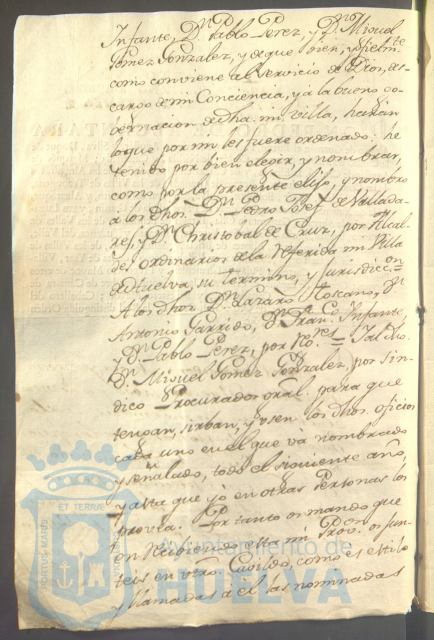 Infante, Dⁿ Pablo Perez, y Dⁿ Miguel
Gomez Gonzalez, y de que bien, y fielmte
como conviene al servicio de Dios, des
cargo de mi Conciencia, y a la buena go
bernacion de dha. mi villa, haràn
lo que por mi les fuere ordenado: he
tenido por bien elegir, y nombrar,
como por la presente elijo, y nombro
a los dhos. Dⁿ Pedro Josef de Vallada-
res, y Dⁿ Christobal de Cruz, por Alcal-
des ordinarios de la referida mi Villa
de Huelva, su termino, y jurisdiccon
A los dhos Dⁿ Lazaro Toscano, Dⁿ
Antonio Garrido, Dⁿ Franco Infante,
y Dⁿ Pablo Perez, por
Dⁿ Miguel Gomez Gonzalez, por Sin-
dico Procurador gral. para que
tengan, sirban, y usen los dhos. oficios
cada uno en el que và nombrado
y señalado, todo el siguiente año,
y asta que yo en otras Personas los
provea. Por tanto os mando que
en recibiendo esta mi Provon os jun-
teis en vro. Cavildo, como es estilo
y llamadas a el las nominadas
ET TERRÆ
PORTUS MARIS
Ayuntamiento de
HUELVA